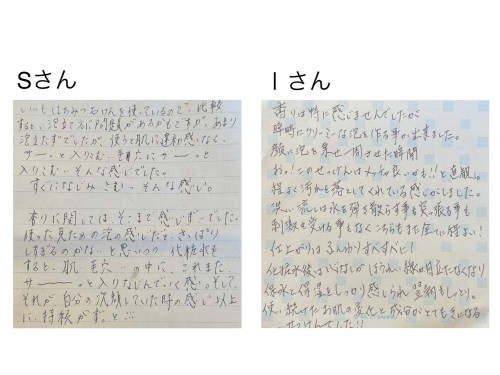 Sさん
いつもはちみつ石けんを使っているので、比較
すると、泡立て方に問題があるかもですが、あまり
泡立たずでしたが、使うと肌に違和感なく、
サーっと入りこむ…毛穴にサーっと
入りこむ…そんな感じでした。
すぐになじみこむ…そんな感じ。
香りに関しては、そこまで感じず…でした。
使った見ための泡の感じだと、さっぱり
しすぎるのかな…と思いつつ、化粧水を
すると、肌、毛穴…中に、これまた、
サーーっと入りなじんでいく感じ。そして、
それが、自分の洗顔していた時の感じ以上
に、持続がずっと…
Iさん
香りは特に感じませんでしたが
瞬時にクリーミーな泡を作る事が出来ました。
顔に泡を乗せ一周させた瞬間
お!!このせっけんはメッチャ良いかも!!と直感。
程よく汚れを落としてくれている感じがしました。
洗い流しは水を弾き散らす事も突っ張る事も
刺激を受ける事もなくこちらもまた金で締まい!
仕上がりはるんかりすべすべに!
化粧水後はくすみがはらわれ、線が目立たなくなり
保水と保湿をしっかり感じられ翌朝もしっとり。
使い続けたお肌の変化と成分がとても気になる
せっけんでした!!